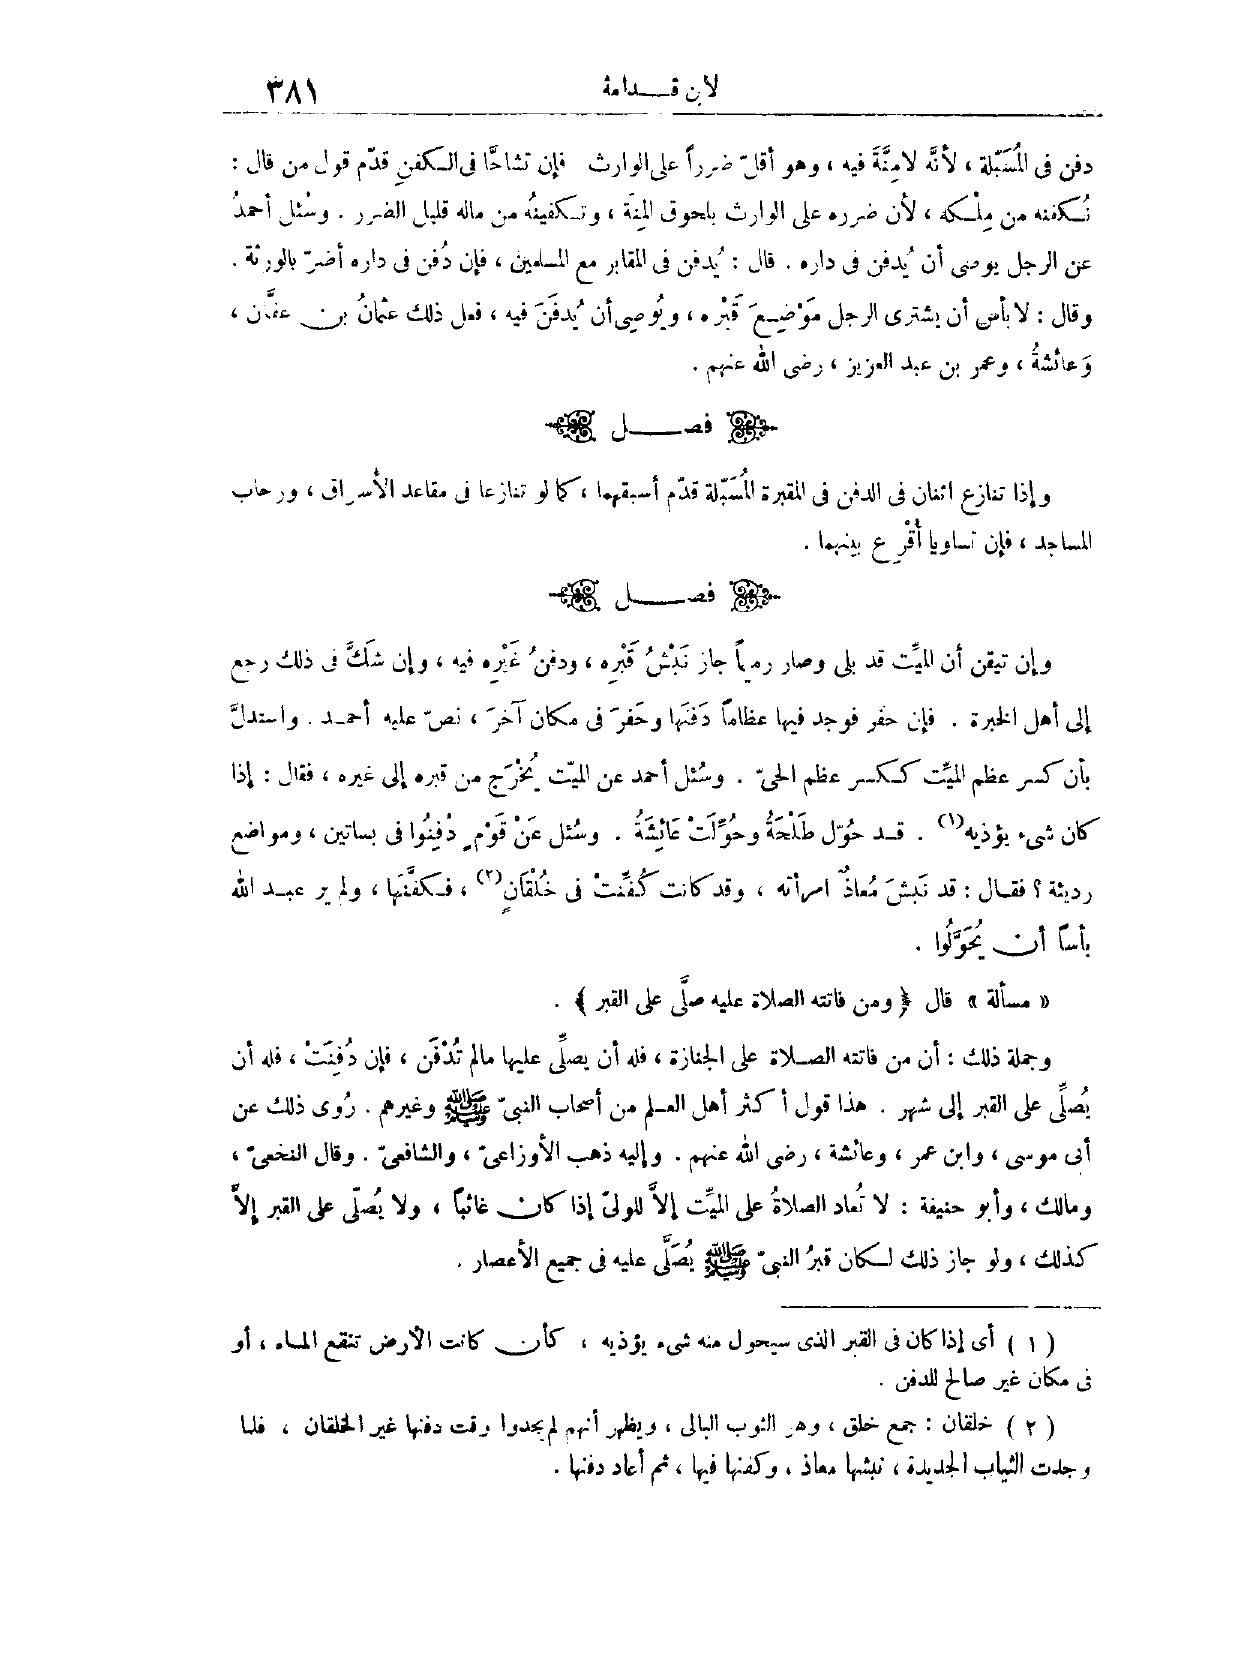 لابن قدامة
٣٨١
دفن فى المُسَبّلة ، لأنّه لا مِنَّةَ فيه ، وهو أقلّ ضرراً على الوارث فإن تشاحَّا فى الكفنِ قدّم قول من قال :
نُكفنه من مِلْكه ، لأن ضرره على الوارث بلحوق المِنة ، وتكفينُه من ماله قليل الضرر . وسْئل أحمدُ
عن الرجل يوصى أن يُدفن فى داره . قال : يُدفن فى المقابر مع المسلمين ، فإن دُفن فى داره أضرّ بالورثة .
وقال : لا بأس أن يشترى الرجل مَوْضِعَ قَبْره ، ويُوصِى أن يُدفَنَ فيه ، فعل ذلك عثمانُ بن عفَّان ،
وَعائشةُ ، وعمر بن عبد العزيز ، رضى الله عنهم .
فصل
وإذا تنازع اثنان فى الدفن فى المقبرة المُسَبّلة قدّم أسبقهما ، كما لو تنازعا فى مقاعد الأسواق ، ورحاب
المساجد ، فإن تساويا أُقْرِع بينهما .
فصل
وإن تيقن أن الميِّت قد بلى وصار رميماً جاز نَبْشُ قَبْرِه ، ودفنُ غَيْرِه فيه ، وإن شَكَّ فى ذلك رجع
إلى أهل الخبرة . فإن حفر فوجد فيها عظاماً دَفَنَها وحَفرَ فى مكان آخرَ ، نصّ عليه أحمد . واستدلَّ
بأن كسر عظم الميِّت ككسر عظم الحىّ . وسُئل أحمد عن الميّت يُخْرَج من قبره إلى غيره ، فقال : إذا
كان شىء يؤذيه(١) . قد حُوّل طَلْحَةُ وحُوِّلَتْ عَائِشَةُ . وسُئل عَنْ قَوْمٍ دُفِنُوا فى بساتين ، ومواضع
رديئة ؟ فقال : قد نَبشَ مُعاذٌ امرأته ، وقد كانت كُفِّنتْ فى خُلْقَانٍ(٢) ، فكفَّنَها ، ولم ير عبد الله
بأساً أن يُحَوَّلُوا .
« مسألة » قال ﴿ ومن فاتته الصلاة عليه صلَّى على القبر ﴾ .
وجملة ذلك : أن من فاتته الصلاة على الجنازة ، فله أن يصلِّى عليها مالم تُدْفَن ، فإن دُفِنَتْ ، فله أن
يُصلِّى على القبر إلى شهر . هذا قول أكثر أهل العلم من أصحاب النبىّ ﷺ وغيرهم . رُوى ذلك عن
أبى موسى ، وابن عمر ، وعائشة ، رضى الله عنهم . وإليه ذهب الأوزاعىّ ، والشافعىّ . وقال النخعىّ ،
ومالك ، وأبو حنيفة : لا تُعاد الصلاةُ على الميِّت إلاَّ للولىّ إذا كان غائباً ، ولا يُصلّى على القبر إلاَّ
كذلك ، ولو جاز ذلك لكان قبرُ النبىّ ﷺ يُصَلَّى عليه فى جميع الأعصار .
( ١ ) أى إذا كان فى القبر الذى سيحول منه شىء يؤذيه ، كأن كانت الأرض تنقع الماء ، أو
فى مكان غير صالح للدفن .
( ٢ ) خلقان : جمع خلق ، وهو الثوب البالى ، ويظهر أنهم لم يجدوا وقت دفنها غير الخلقان ، فلما
وجدت الثياب الجديدة ، نبشها معاذ ، وكفنها فيها ، ثم أعاد دفنها .